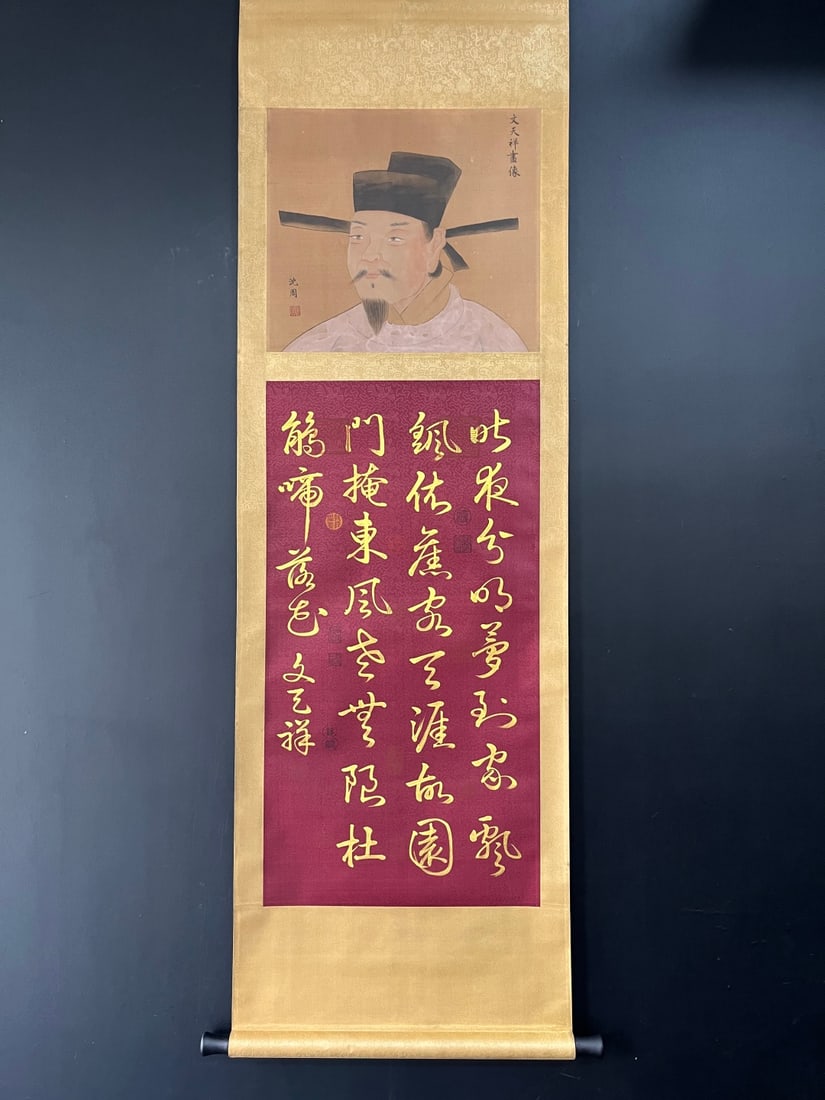 文天祥畫像
沈周
昨夜分明夢到家飄
颻依舊客天涯故園
門掩東風老無限杜
鵑啼落花 文天祥